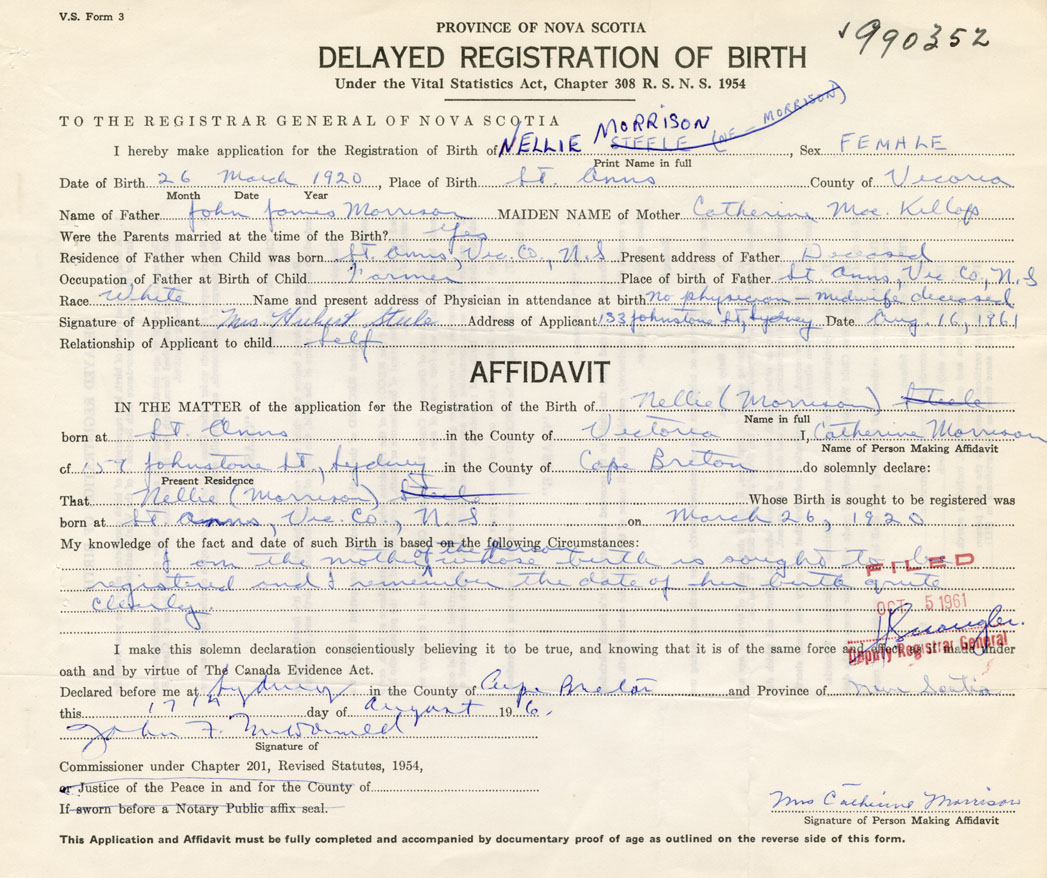 V.S. Form 3
PROVINCE OF NOVA SCOTIA
990352
DELAYED REGISTRATION OF BIRTH
Under the Vital Statistics Act, Chapter 308 R. S. N. S. 1954
TO THE REGISTRAR GENERAL OF NOVA SCOTIA
I hereby make application for the Registration of Birth of NELLIE MORRISON STEELE (NE - MORRISON), Sex FEMALE
Print Name in full
Date of Birth 26 March 1920, Place of Birth St. Anns County of Vicoria
Month Date Year
Name of Father John James Morrison MAIDEN NAME of Mother Catherine Mac Killop
Were the Parents married at the time of the Birth? Yes
Residence of Father when Child was born St. Anns, Vic. Co., N.S Present address of Father Deceased
Occupation of Father at Birth of Child Farmer Place of birth of Father St Anns, Vic. Co., N.S
Race White Name and present address of Physician in attendance at birth no physician - midwife deceased
Signature of Applicant Mrs. Hubert Steele Address of Applicant 133 Johnstone St, Sydney Date Aug. 16, 1961
Relationship of Applicant to child Self
AFFIDAVIT
IN THE MATTER of the application for the Registration of the Birth of Nellie (Morrison) Steele
Name in full
born at St. Anns in the County of Victoria I, Catherine Morrison
Name of Person Making Affidavit
of Johnstone St., Sydney in the County of Cape Breton do solemnly declare:
Present Residence
That Nellie (Morrison) Steele Whose Birth is sought to be registered was
born at St. Anns, Vic. Co., N.S. on March 26, 1920
My knowledge of the fact and date of such Birth is based on the following Circumstances:
I am the mother of the person whose birth is sought to be
registered and I remember the date of her birth quite
clearly.
FILED
OCT 5 1961
Deputy Registrar General
I make this solemn declaration conscientiously believing it to be true, and knowing that it is of the same force and effect as if made under
oath and by virtue of The Canada Evidence Act.
Declared before me at Sydney in the County of Cape Breton and Province of Nova Scotia
this 17th day of August 196.
John F.
Signature of
Commissioner under Chapter 201, Revised Statutes, 1954,
or Justice of the Peace in and for the County of
If sworn before a Notary Public affix seal.
Mrs Catherine Morrison
Signature of Person Making Affidavit
This Application and Affidavit must be fully completed and accompanied by documentary proof of age as outlined on the reverse side of this form.